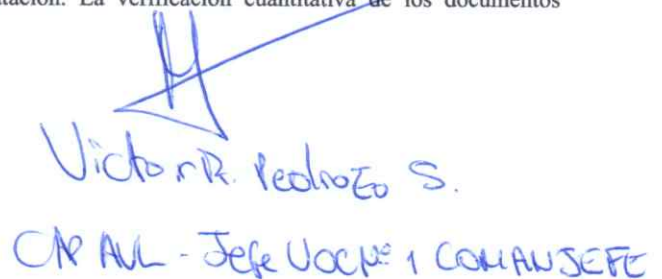 tación. La verificación cuantitativa de los documentos
Victor R. Pedrozo S.
CAP AVL - Jefe UOC Nº 1 COMANJEFE